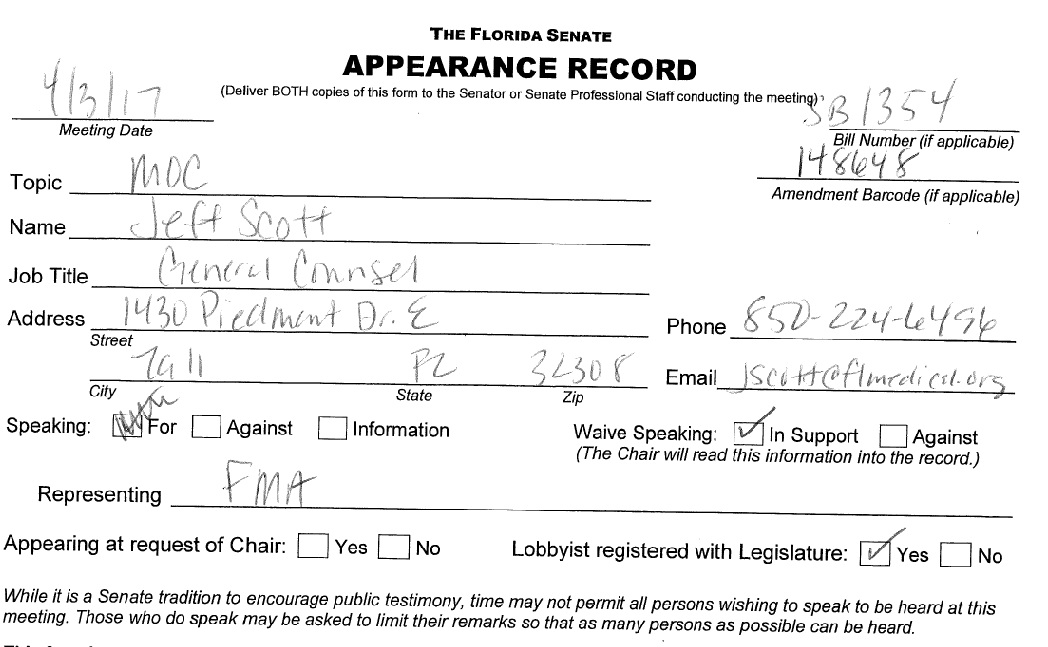 THE FLORIDA SENATE
APPEARANCE RECORD
(Deliver BOTH copies of this form to the Senator or Senate Professional Staff conducting the meeting)
4/3/17
Meeting Date
SB 1354
Bill Number (if applicable)
148648
Amendment Barcode (if applicable)
Topic MOC
Name Jeff Scott
Job Title General Counsel
Address 1430 Piedmont Dr. E
Street
Phone 850-224-6496
Tall FL 32308
City State Zip
Email jscott@flmedical.org
Speaking: For Against Information
Waive Speaking: In Support Against
(The Chair will read this information into the record.)
Representing FMA
Appearing at request of Chair: Yes No
Lobbyist registered with Legislature: Yes No
While it is a Senate tradition to encourage public testimony, time may not permit all persons wishing to speak to be heard at this
meeting. Those who do speak may be asked to limit their remarks so that as many persons as possible can be heard.